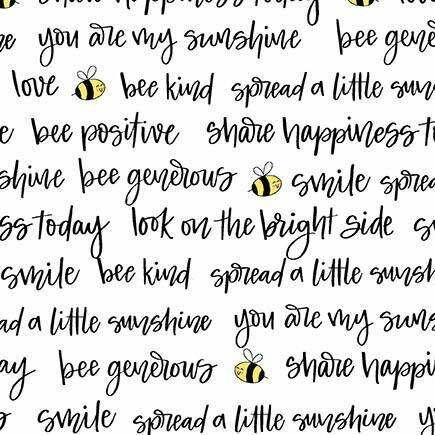 share happiness today love
you are my sunshine bee gene
love bee kind spread a little sun
e bee positive share happiness t
shine bee generous smile sprea
ss today look on the bright side s
smile bee kind spread a little sunsh
ad a little sunshine you are my suns
ay bee generous share happi
smile spread a little sunshine y